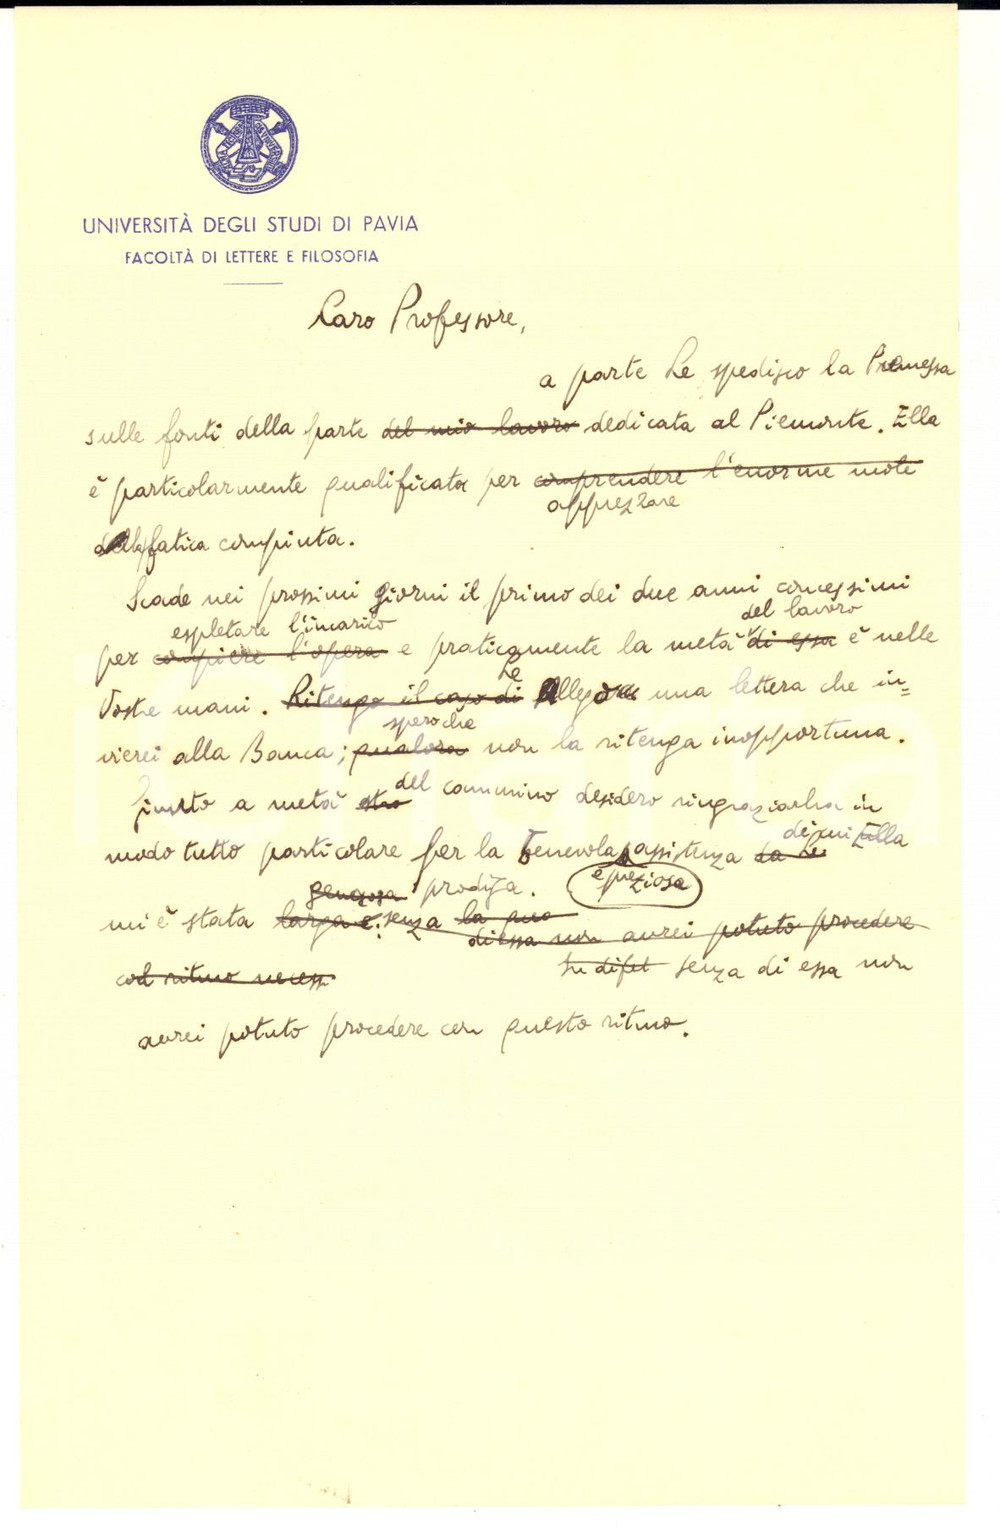 UNIVERSITÀ DEGLI STUDI DI PAVIA
FACOLTÀ DI LETTERE E FILOSOFIA
Caro Professore,
a parte Le spedisco la Premessa
sulle fonti della parte del mio lavoro dedicata al Piemonte. Ella
è particolarmente qualificata per comprendere l'enorme mole
apprezzare
della fatica compiuta.
Scade nei prossimi giorni il primo dei due anni concessimi
espletare l'incarico del lavoro
per compiere l'opera e praticamente la metà di essa è nelle
Le
Vostre mani. Ritengo il caso di Allego una lettera che in=
spero che
vierei alla Banca; qualora non la ritenga inopportuna.
del cammino
Giunto a metà desidero ringraziarla in
di cui Ella
modo tutto particolare per la benevola assistenza da Lei
generosa prodiga. e preziosa
mi è stata larga e: senza la qua
di essa non aurei potuto procedere
col ritmo necess
senza di essa non
aurei potuto procedere con questo ritmo.